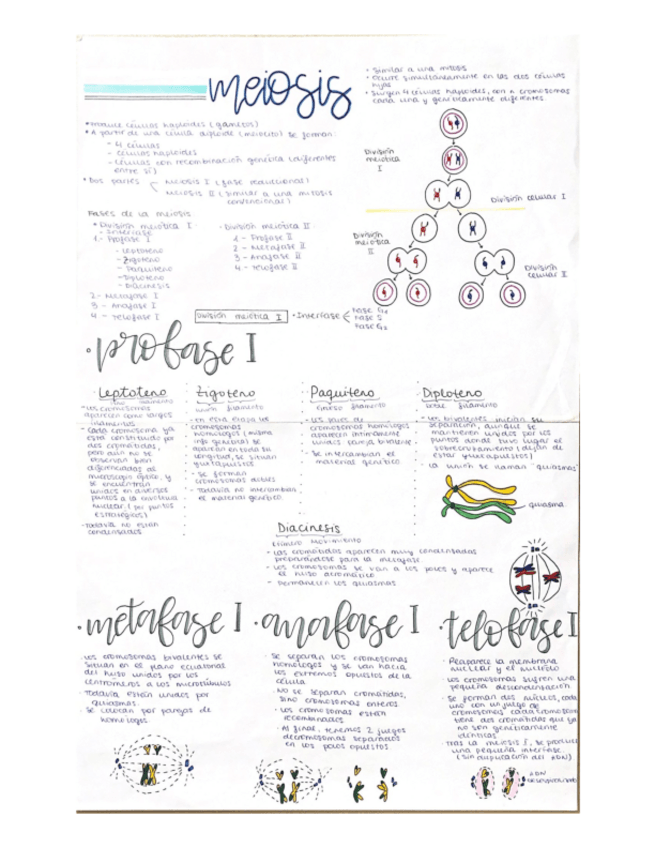 meiosis
• Similar a una mitosis
• Ocurre simultáneamente en las dos células
hijas
• Surgen 4 células haploides, con n cromosomas
cada una y genéticamente diferentes.
• Produce células haploides (gametos)
• A partir de una célula diploide (meiocito) se forman:
- 4 células
- células haploides
- células con recombinación genética (diferentes
entre sí)
• Dos partes
Meiosis I (fase reduccional)
Meiosis II (similar a una mitosis
convencional)
Fases de la meiosis
• División meiótica I
- Interfase
1- Profase I
- Leptoteno
- Zigoteno
- Paquiteno
- Diploteno
- Diacinesis
2- Metafase I
3 - Anafase I
4 - Telofase I
• División meiótica II
1 - Profase II
2 - Metafase II
3 - Anafase II
4 - Telofase II
División
meiótica
I
División celular I
División
meiótica
II
División
celular II
División meiótica I
• Interfase
Fase G1
Fase S
Fase G2
• profase I
Leptoteno
- Los cromosomas
aparecen como largos
filamentos
- Cada cromosoma ya
está constituido por
dos cromátidas,
pero aún no se
observan bien
diferenciadas al
microscopio óptico, y
se encuentran
unidas en diversos
puntos a la envoltura
nuclear (por puntos
estratégicos)
- Todavía no están
condensados
Zigoteno
unión filamento
- en esta etapa los
cromosomas
homólogos (misma
info genética) se
aparean en toda su
longitud, se sitúan
yuxtapuestos
- Se forman
cromosomas dobles
- Todavía no intercambian
el material genético
Paquiteno
grueso filamento
- Los pares de
cromosomas homólogos
aparecen íntimamente
unidos: pareja bivalente
- Se intercambian el
material genético
Diploteno
doble filamento
- Los bivalentes inician su
separación, aunque se
mantienen unidos por los
puntos donde tuvo lugar el
sobrecruzamiento (dejan de
estar yuxtapuestos)
- La unión se llaman "quiasmas"
quiasma
Diacinesis
último movimiento
- Las cromátidas aparecen muy condensadas
preparándose para la metafase
- Los cromosomas se van a los polos y aparece
el huso acromático
- Permanecen los quiasmas
• metafase I
- Los cromosomas bivalentes se
sitúan en el plano ecuatorial
del huso unidos por los
centrómeros a los microtúbulos
- Todavía están unidos por
quiasmas.
- Se colocan por parejas de
homólogos
• anafase I
- Se separan los cromosomas
homólogos y se van hacia
los extremos opuestos de la
célula
- No se separan cromátidas,
sino cromosomas enteros
- Los cromosomas están
recombinados
- Al final, tenemos 2 juegos
de cromosomas separados
en los polos opuestos
• telofase I
- Reaparece la membrana
nuclear y el nucléolo
- Los cromosomas sufren una
pequeña descondensación
- Se forman dos núcleos, cada
uno con un juego de
cromosomas cada cromosoma
tiene dos cromátidas que ya
no son genéticamente
idénticas
- Tras la meiosis I, se produce
una pequeña interfase.
(sin duplicación del ADN)
ADN